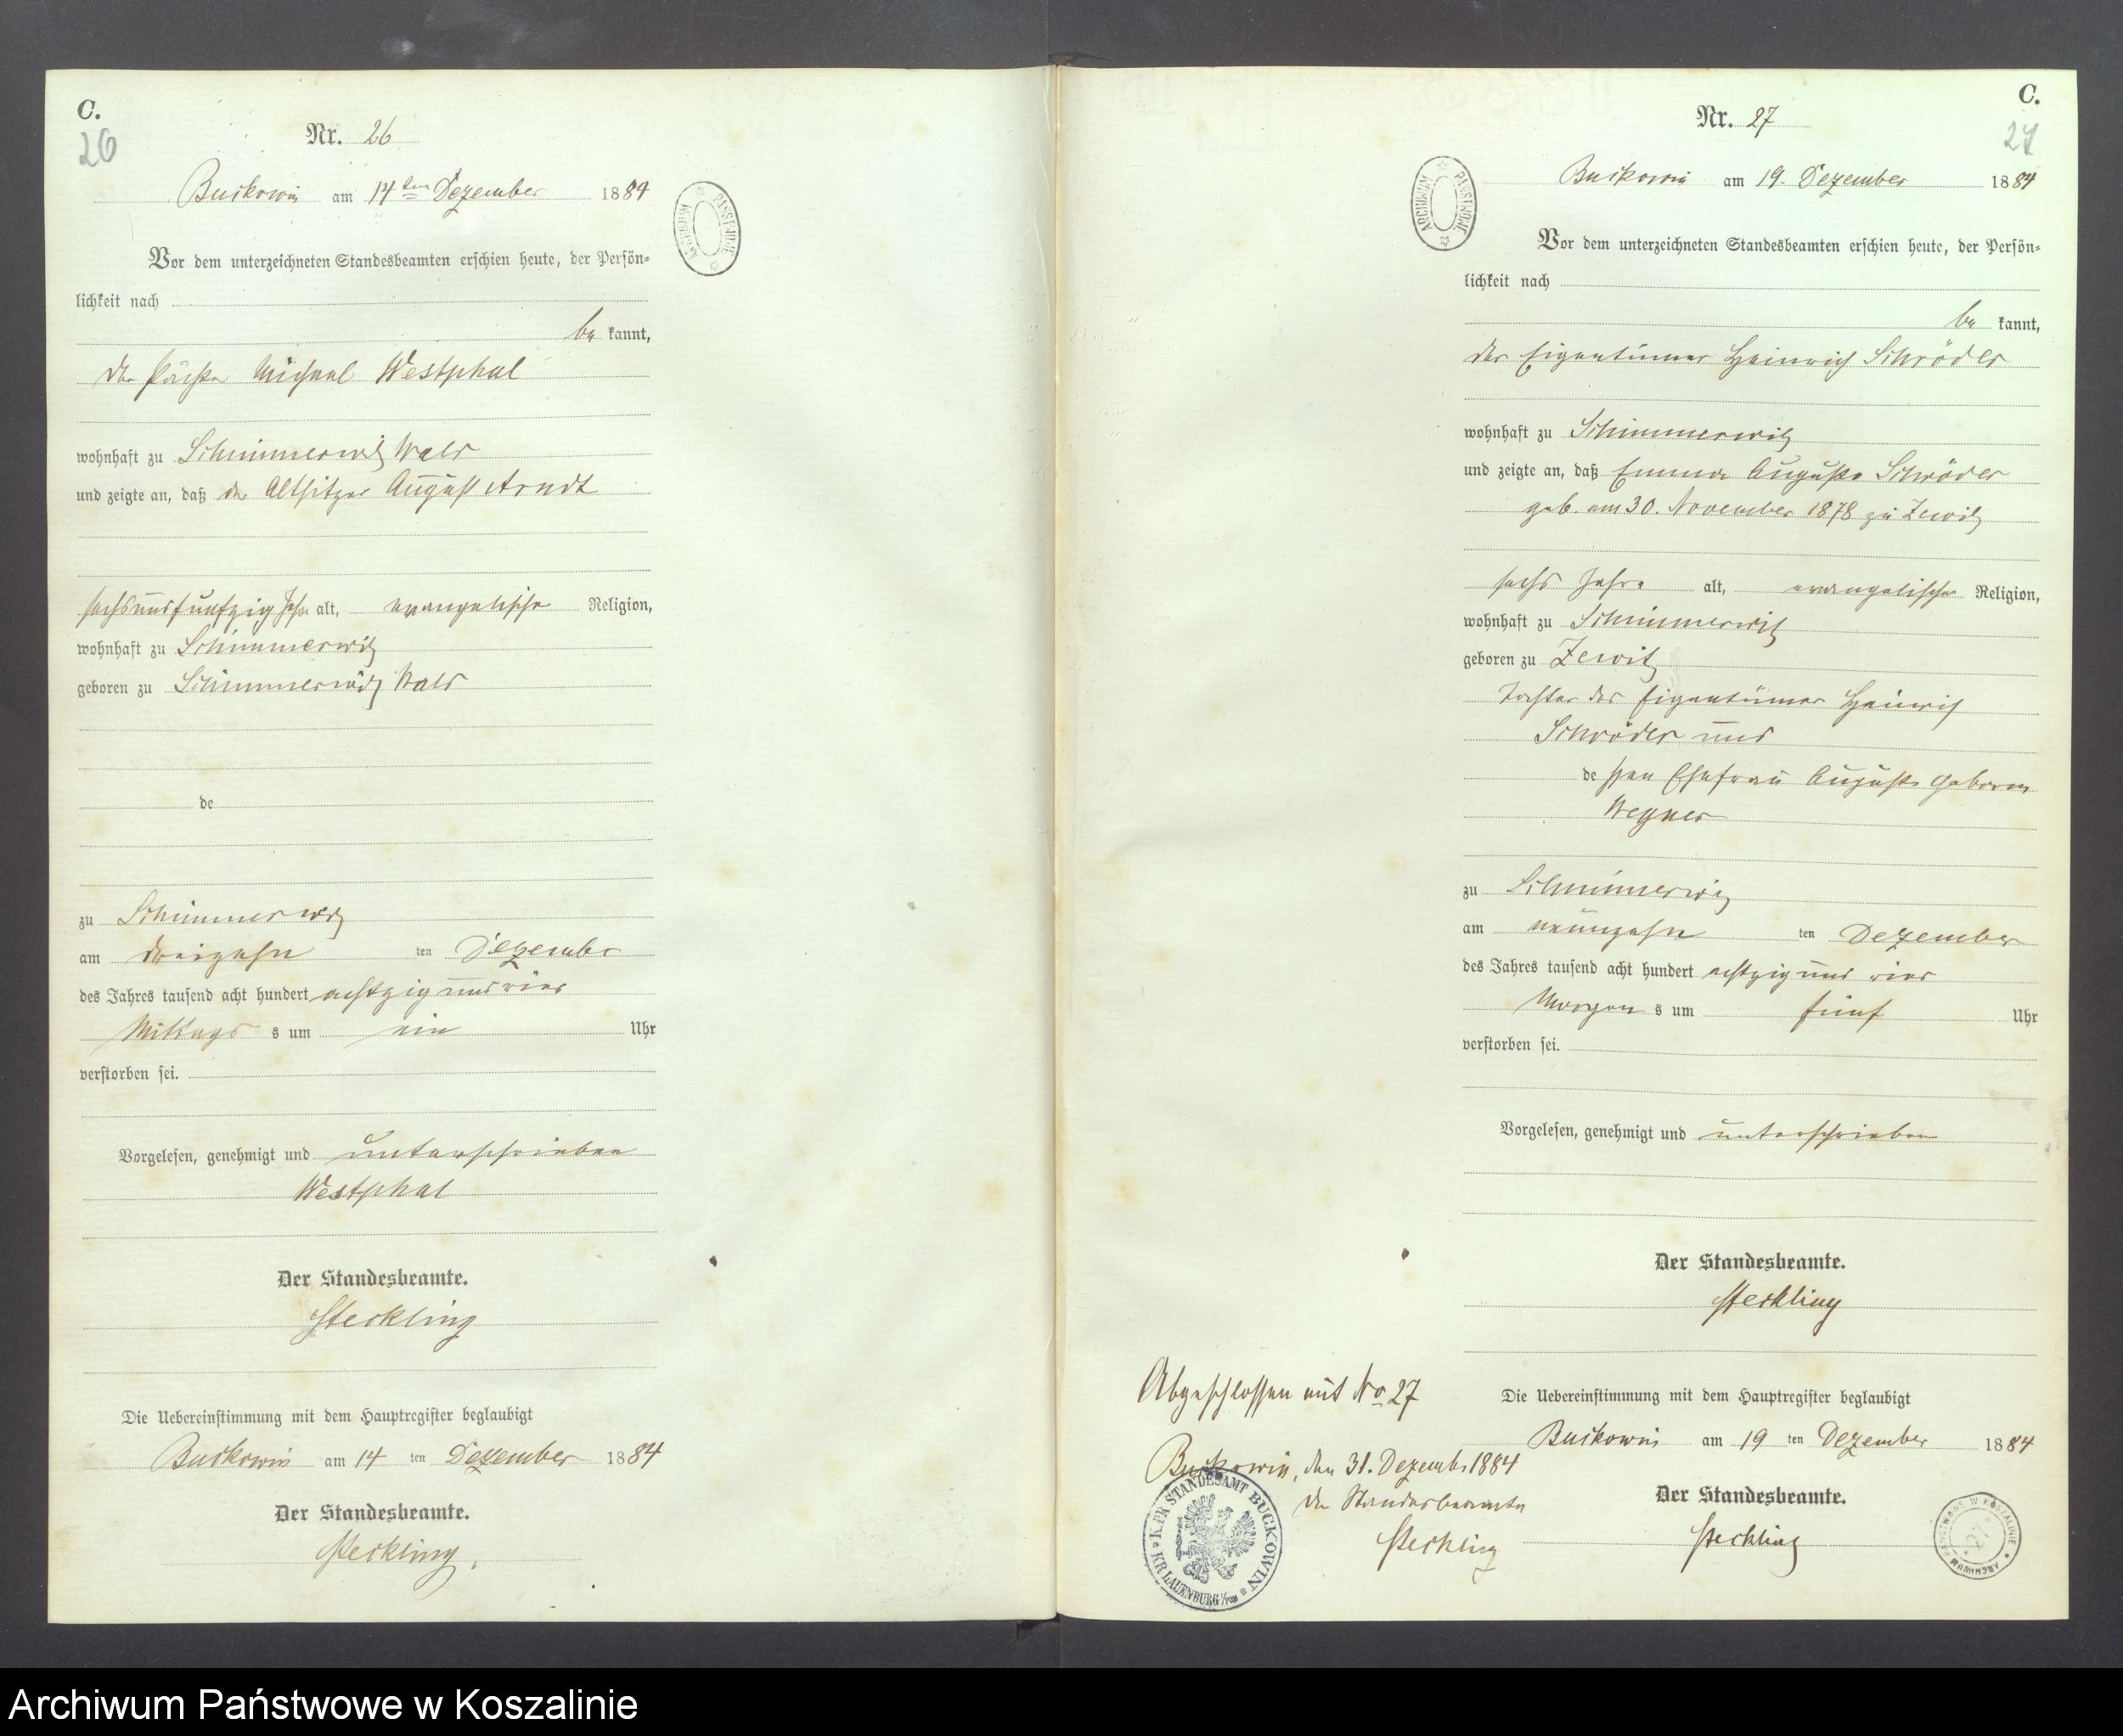 C.
26
Nr. 26
Buckowin am 14ten Dezember 1884
Vor dem unterzeichneten Standesbeamten erschien heute, der Persön-
lichkeit nach
be kannt,
der Pächter Michael Westphal
wohnhaft zu Schimmerwitz Wald
und zeigte an, daß der Altsitzer August Arndt
sechsundfunfzig Jahr alt, evangelische Religion,
wohnhaft zu Schimmerwitz
geboren zu Schimmerwitz Wald
de
zu Schimmerwitz
am dreizehn ten Dezember
des Jahres tausend acht hundert achtzig und vier
Mittags s um ein Uhr
verstorben sei.
Vorgelesen, genehmigt und unterschrieben
Westphal
Der Standesbeamte.
Steckling
Die Uebereinstimmung mit dem Hauptregister beglaubigt
Buckowin am 14 ten Dezember 1884
Der Standesbeamte.
Steckling.
ARCHIWUM PAŃSTWOWE
C.
27
Nr. 27
Buckowin am 19. Dezember 1884
Vor dem unterzeichneten Standesbeamten erschien heute, der Persön-
lichkeit nach
be kannt,
der Eigentümer Heinrich Schröder
wohnhaft zu Schimmerwitz
und zeigte an, daß Emma Auguste Schröder
geb. am 30. November 1878 zu Zewitz
sechs Jahre alt, evangelischer Religion,
wohnhaft zu Schimmerwitz
geboren zu Zewitz
Tochter des Eigentümer Heinrich
Schröder und
de ssen Ehefrau Auguste geboren
Wegner
zu Schimmerwitz
am neunzehn ten Dezember
des Jahres tausend acht hundert achtzig und vier
Morgen s um fünf Uhr
verstorben sei.
Vorgelesen, genehmigt und unterschrieben
Der Standesbeamte.
Steckling
Die Uebereinstimmung mit dem Hauptregister beglaubigt
Buckowin am 19 ten Dezember 1884
Der Standesbeamte.
Steckling
Abgeschlossen mit No 27
Buckowin, den 31. Dezembr 1884
Der Standesbeamte
Steckling
K. PR. STANDESAMT BUCKOWIN
KR. LAUENBURG i/Pom
ARCHIWUM PAŃSTWOWE
ARCHIWUM PAŃSTWOWE W KOSZALINIE
27
Archiwum Państwowe w Koszalinie